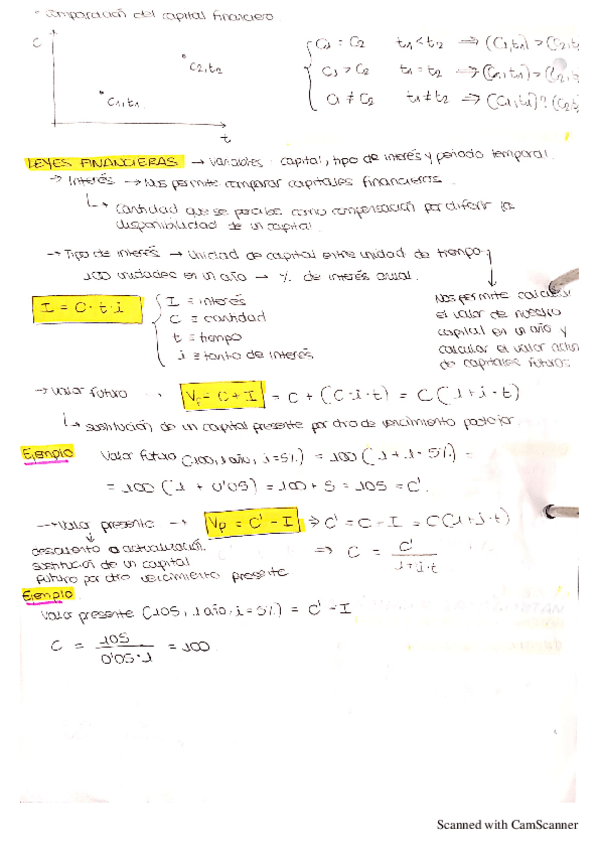 Comparación del capital financiero.
C
C2,t2
C1,t1
t
C1 = C2 t1 < t2 ⇒ (C1,t1) > (C2,t
C1 > C2 t1 = t2 ⇒ (C1,t1) > (C2,
C1 ≠ C2 t1 ≠ t2 ⇒ (C1,t1) ? (C2,t
LEYES FINANCIERAS → variables: capital, tipo de interés y periodo temporal.
→ Interés → Nos permite comparar capitales financieros.
↳ Cantidad que se percibe como compensación por diferir la
disponibilidad de un capital.
→ Tipo de interés → Unidad de capital entre unidad de tiempo.
100 unidades en un año → % de interés anual.
Nos permite calcular
el valor de nuestro
capital en un año y
calcular el valor
de capitales futuros
I = C · t · i
I = interés
C = cantidad
t = tiempo
i = tanto de interés
→ Valor futuro → VF = C + I = C + (C · i · t) = C (1 + i · t)
↳ sustitución de un capital presente por otro de vencimiento posterior.
Ejemplo Valor futuro (100, 1 año, i = 5%) = 100 (1 + 1 · 5%) =
= 100 (1 + 0'05) = 100 + 5 = 105 = C'.
→ Valor presente → VP = C' - I ⇒ C' = C - I = C (1 + i · t)
descuento o actualización.
sustitución de un capital
futuro por otro vencimiento presente
⇒ C = C' / 1 + i · t
Ejemplo
Valor presente (105, 1 año, i = 5%) = C' - I
C = 105 / 0'05 · 1 = 100
Scanned with CamScanner